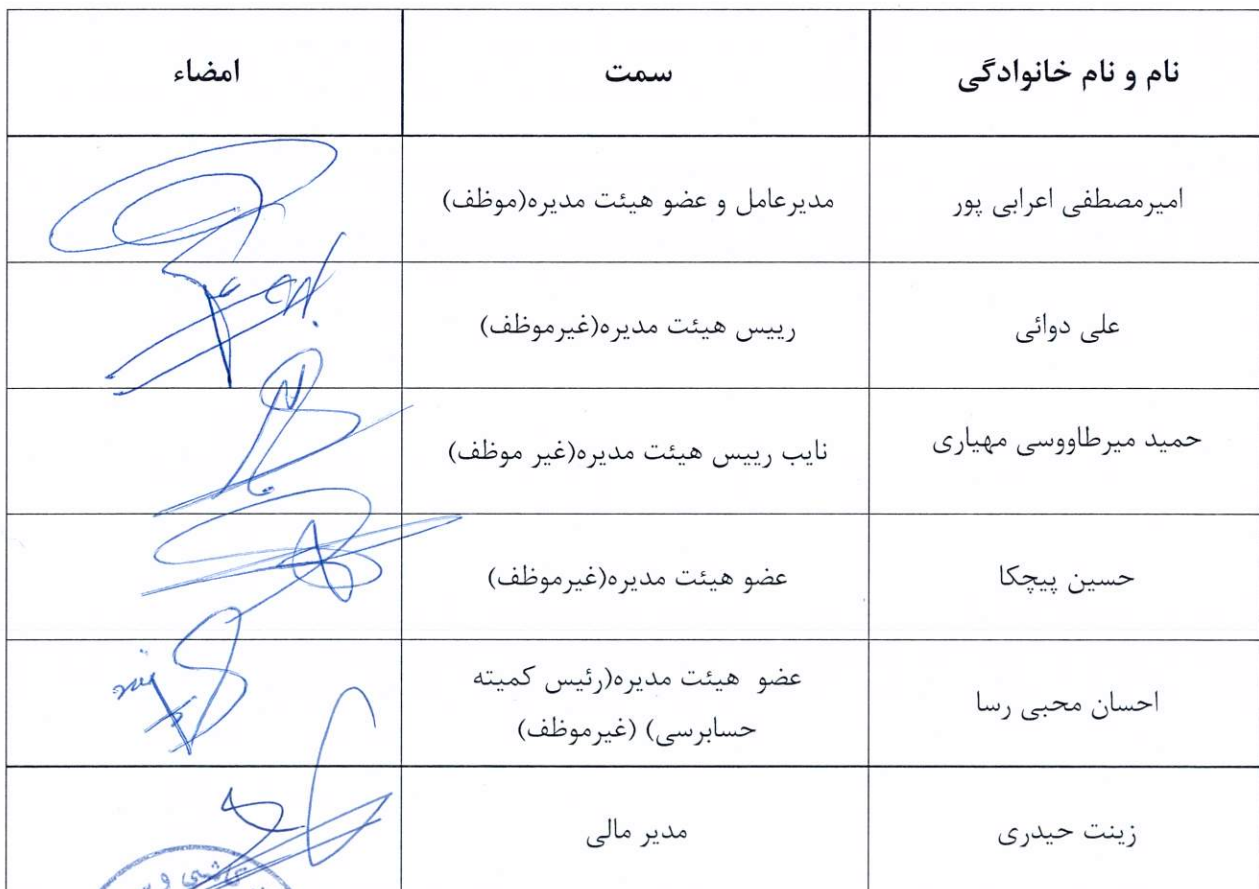 نام و نام خانوادگی سمت امضاء
امیرمصطفی اعرابی پور مدیرعامل و عضو هیئت مدیره(موظف)
علی دوائی رییس هیئت مدیره(غیرموظف)
حمید میرطاووسی مهیاری نایب رییس هیئت مدیره(غیر موظف)
حسین پیچکا عضو هیئت مدیره(غیرموظف)
احسان محبی رسا عضو هیئت مدیره(رئیس کمیته
حسابرسی) (غیرموظف)
زینت حیدری مدیر مالی